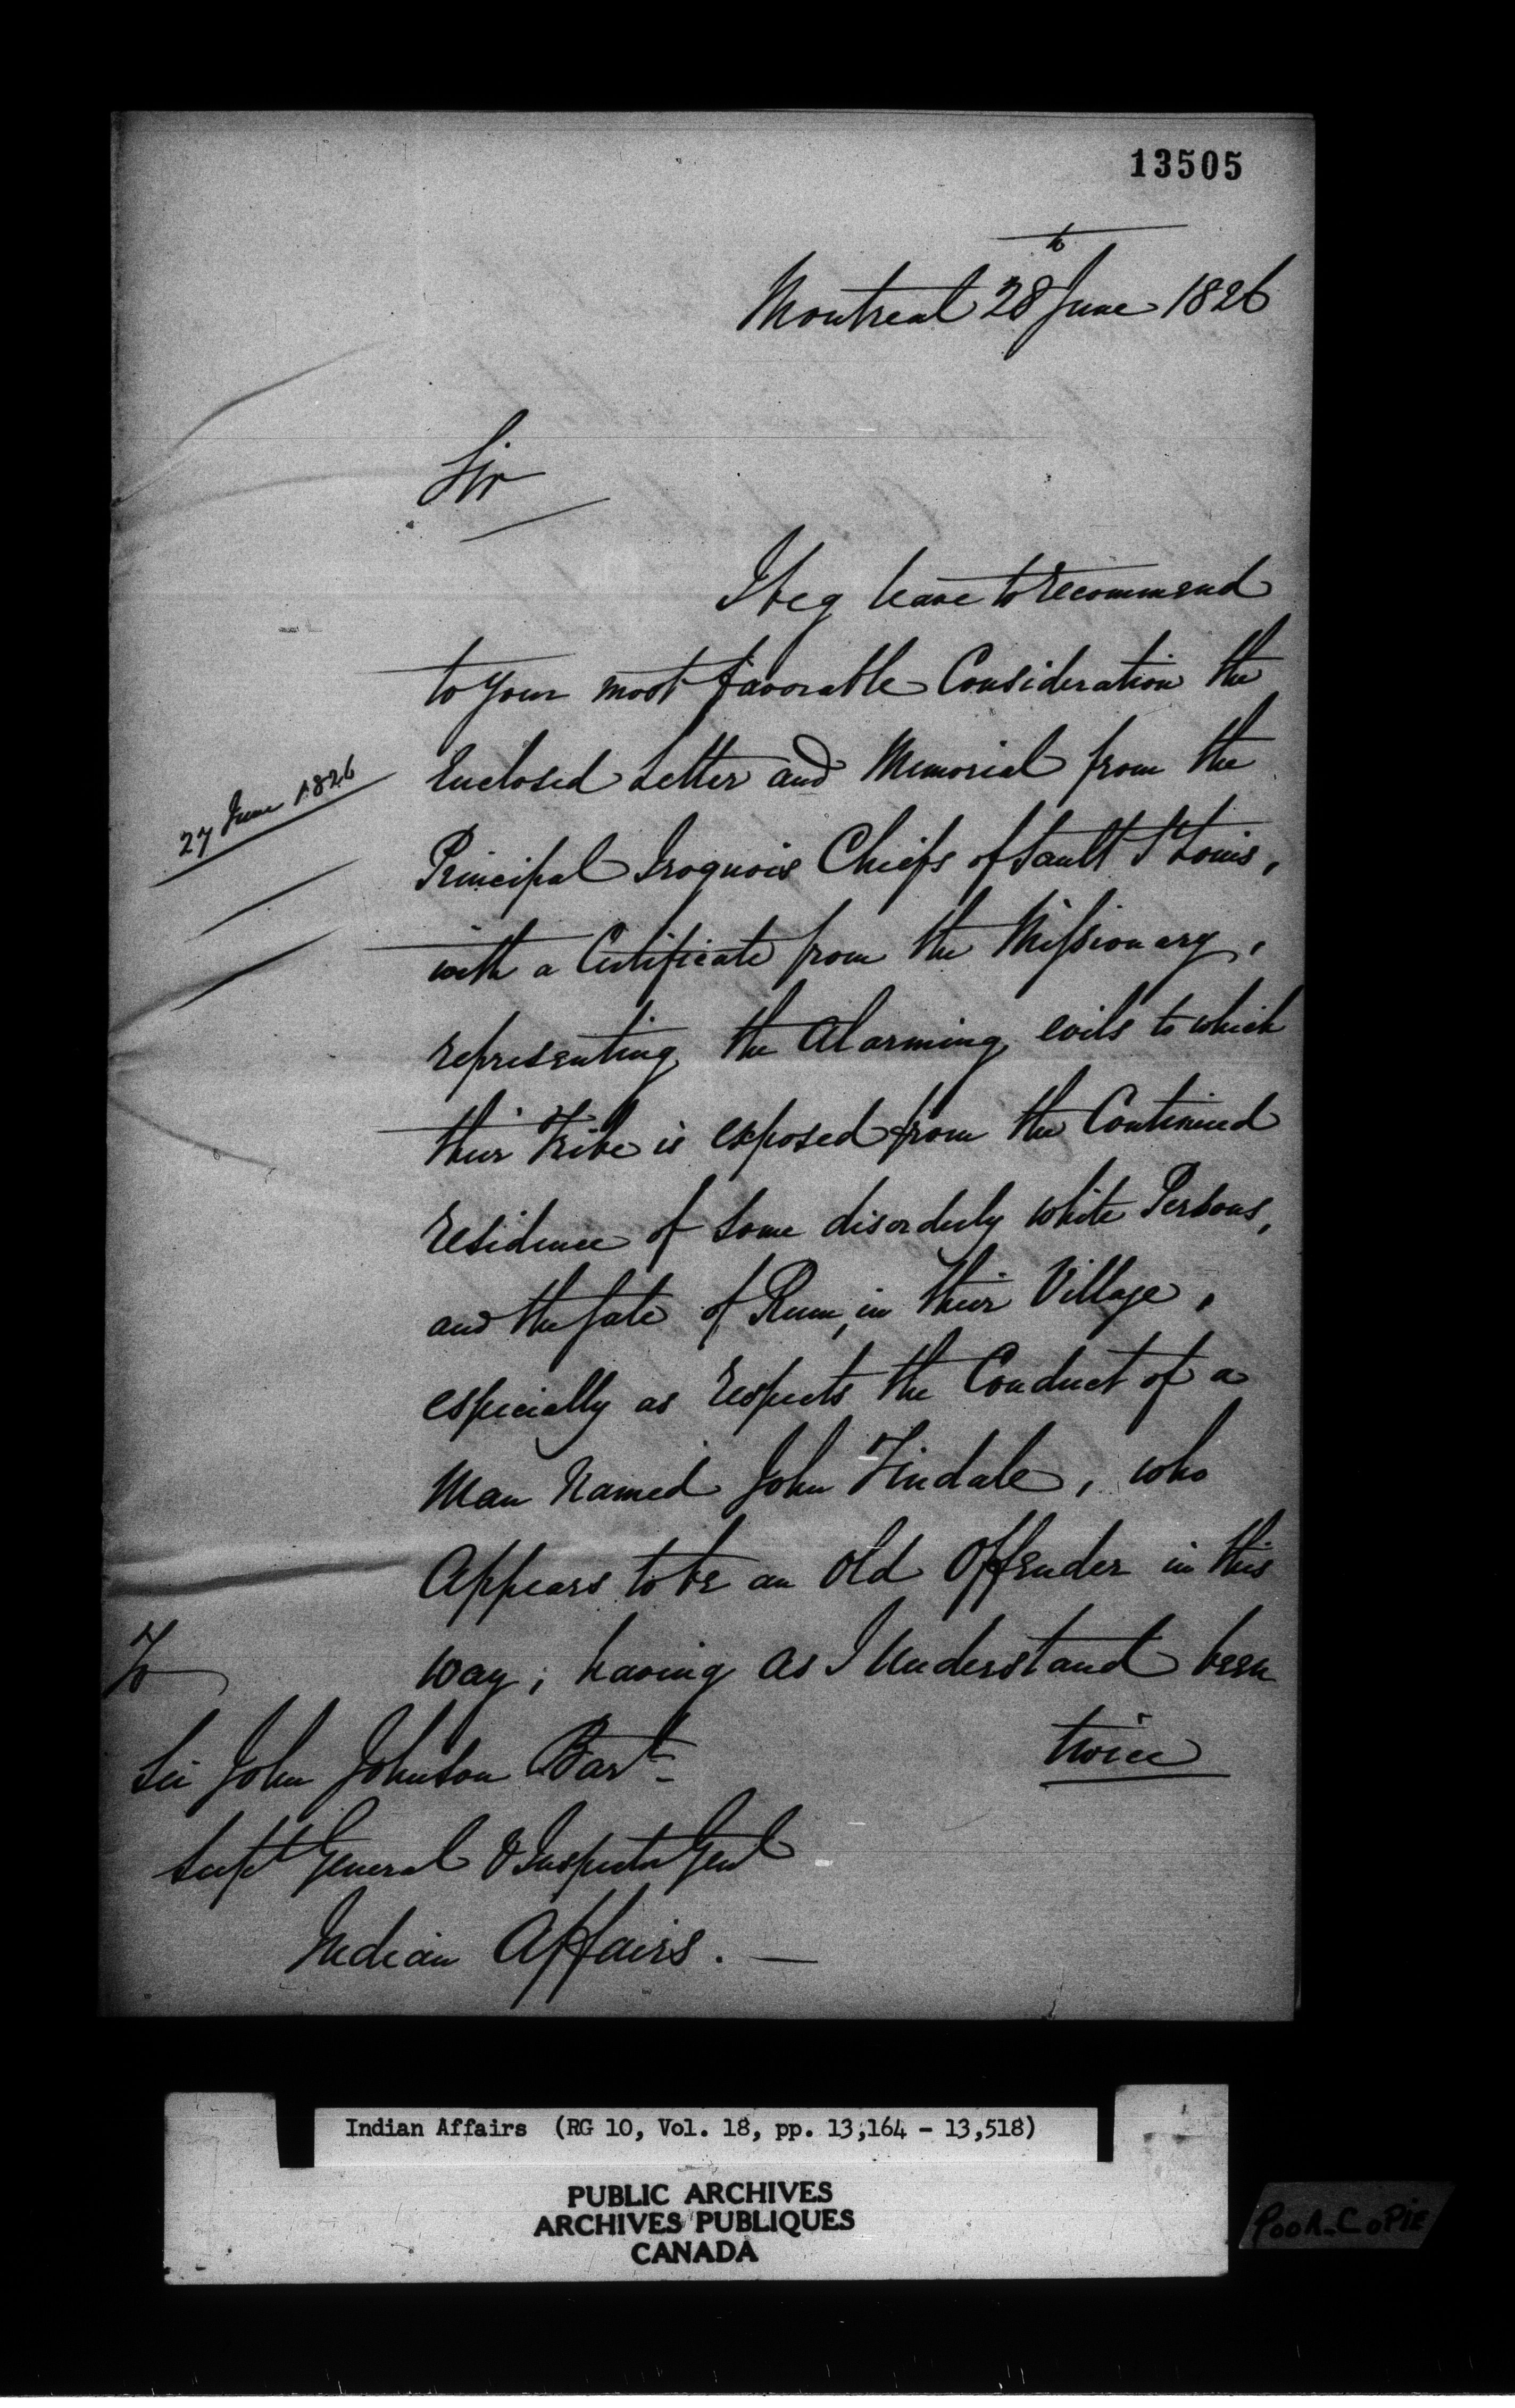 13505
Montreal 28th June 1826
Sir
I beg leave to recommend
to your most favorable Consideration the
Enclosed Letter and Memorial from the
27 June 1826
Principal Iroquois Chiefs of Sault St Louis,
with a Certificate from the Missionary,
representing the Alarming evils to which
their Tribe is exposed from the Continued
residence of some disorderly white Persons,
and the sale of Rum, in their Village,
especially as respects the Conduct of a
Man Named John Tindale, who
Appears to be an Old Offender in this
way; having as I Understand been
twice
To
Sir John Johnson Bart
Supt General & Inspector Genl
Indian Affairs. —
Indian Affairs (RG 10, Vol. 18, pp. 13,164 - 13,518)
PUBLIC ARCHIVES
ARCHIVES PUBLIQUES
CANADA
POOR COPIE